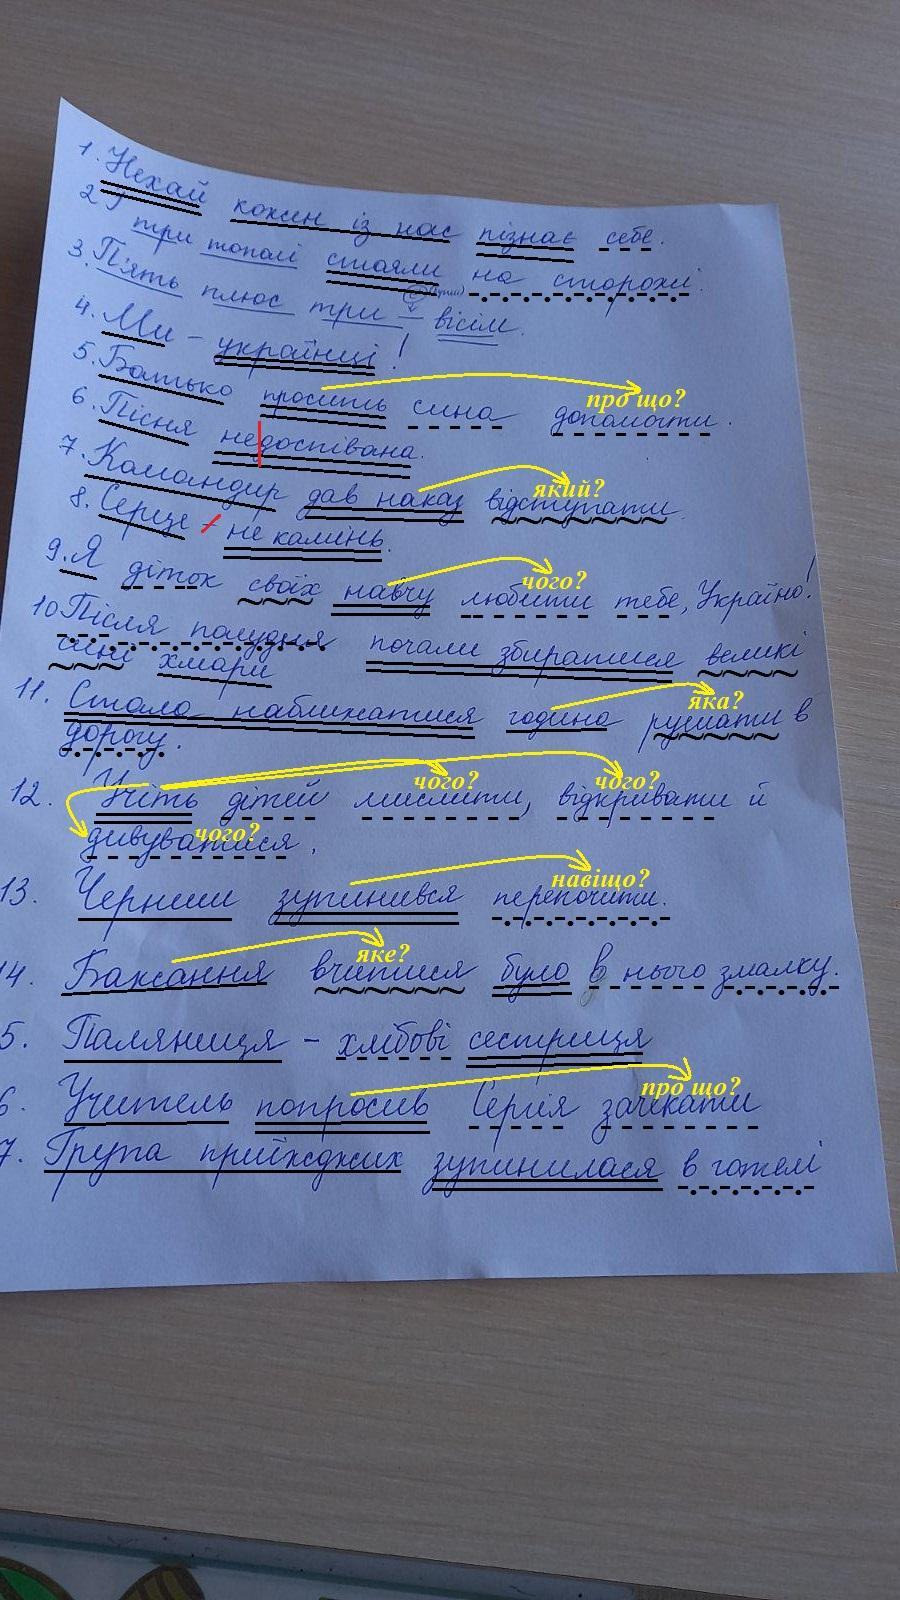 1. Нехай кожен із нас пізнає себе.
2 У три тополі стояли на сторожі.
3. П'ять плюс три = вісім.
4. Ми – українці!
5. Батько просить сина допомогти.
про що?
6. Пісня недоспівана.
7. Командир дав наказ відступати.
який?
8. Серце – не камінь.
9. Я діток своїх навчу любити тебе, Україно!
чого?
10 Після полудня почали збиратися великі
сині хмари
11. Стала наближатися година рушати в
яка?
дорогу.
12. Учіть дітей мислити, відкривати й
чого? чого?
дивуватися.
чого?
13. Черниш зупинився перепочити.
навіщо?
14. Бажання вчитися було в нього змалку.
яке?
5. Паляниця – хлібові сестриця
6. Учитель попросив Сергія зачекати
про що?
7. Група приїжджих зупинилася в готелі